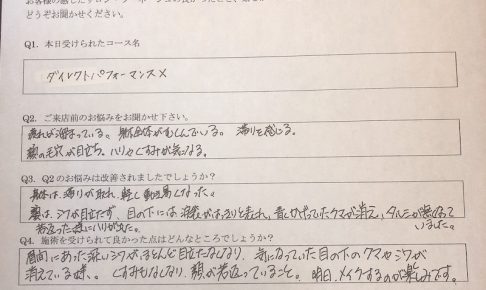 どうぞお聞かせください。
Q1. 本日受けられたコース名
ダイレクトパフォーマンスX
Q2. ご来店前のお悩みをお聞かせ下さい。
疲れが溜まっている。身体全体がむくんでいる。滞りを感じる。
顔の毛穴が目立ち、ハリやくすみが気になる。
Q3. Q2のお悩みは改善されましたでしょうか?
身体は滞りが取れ、軽く動き易くなった。
顔は、シワが目立たず、目の下には涙袋がはっきりと表れ、青しかかっていたクマが消え、タルミが無くなって
いました。
若返った様にハリが出た。
Q4. 施術を受けられて良かった点はどんなところでしょうか?
眉間にあった深いシワがほとんど目立たなくなり、気になっていた目の下のクマやシワが
消えている様、。くすみもなくなり、顔が若返っていること。明日、メイクするのが楽しみです。